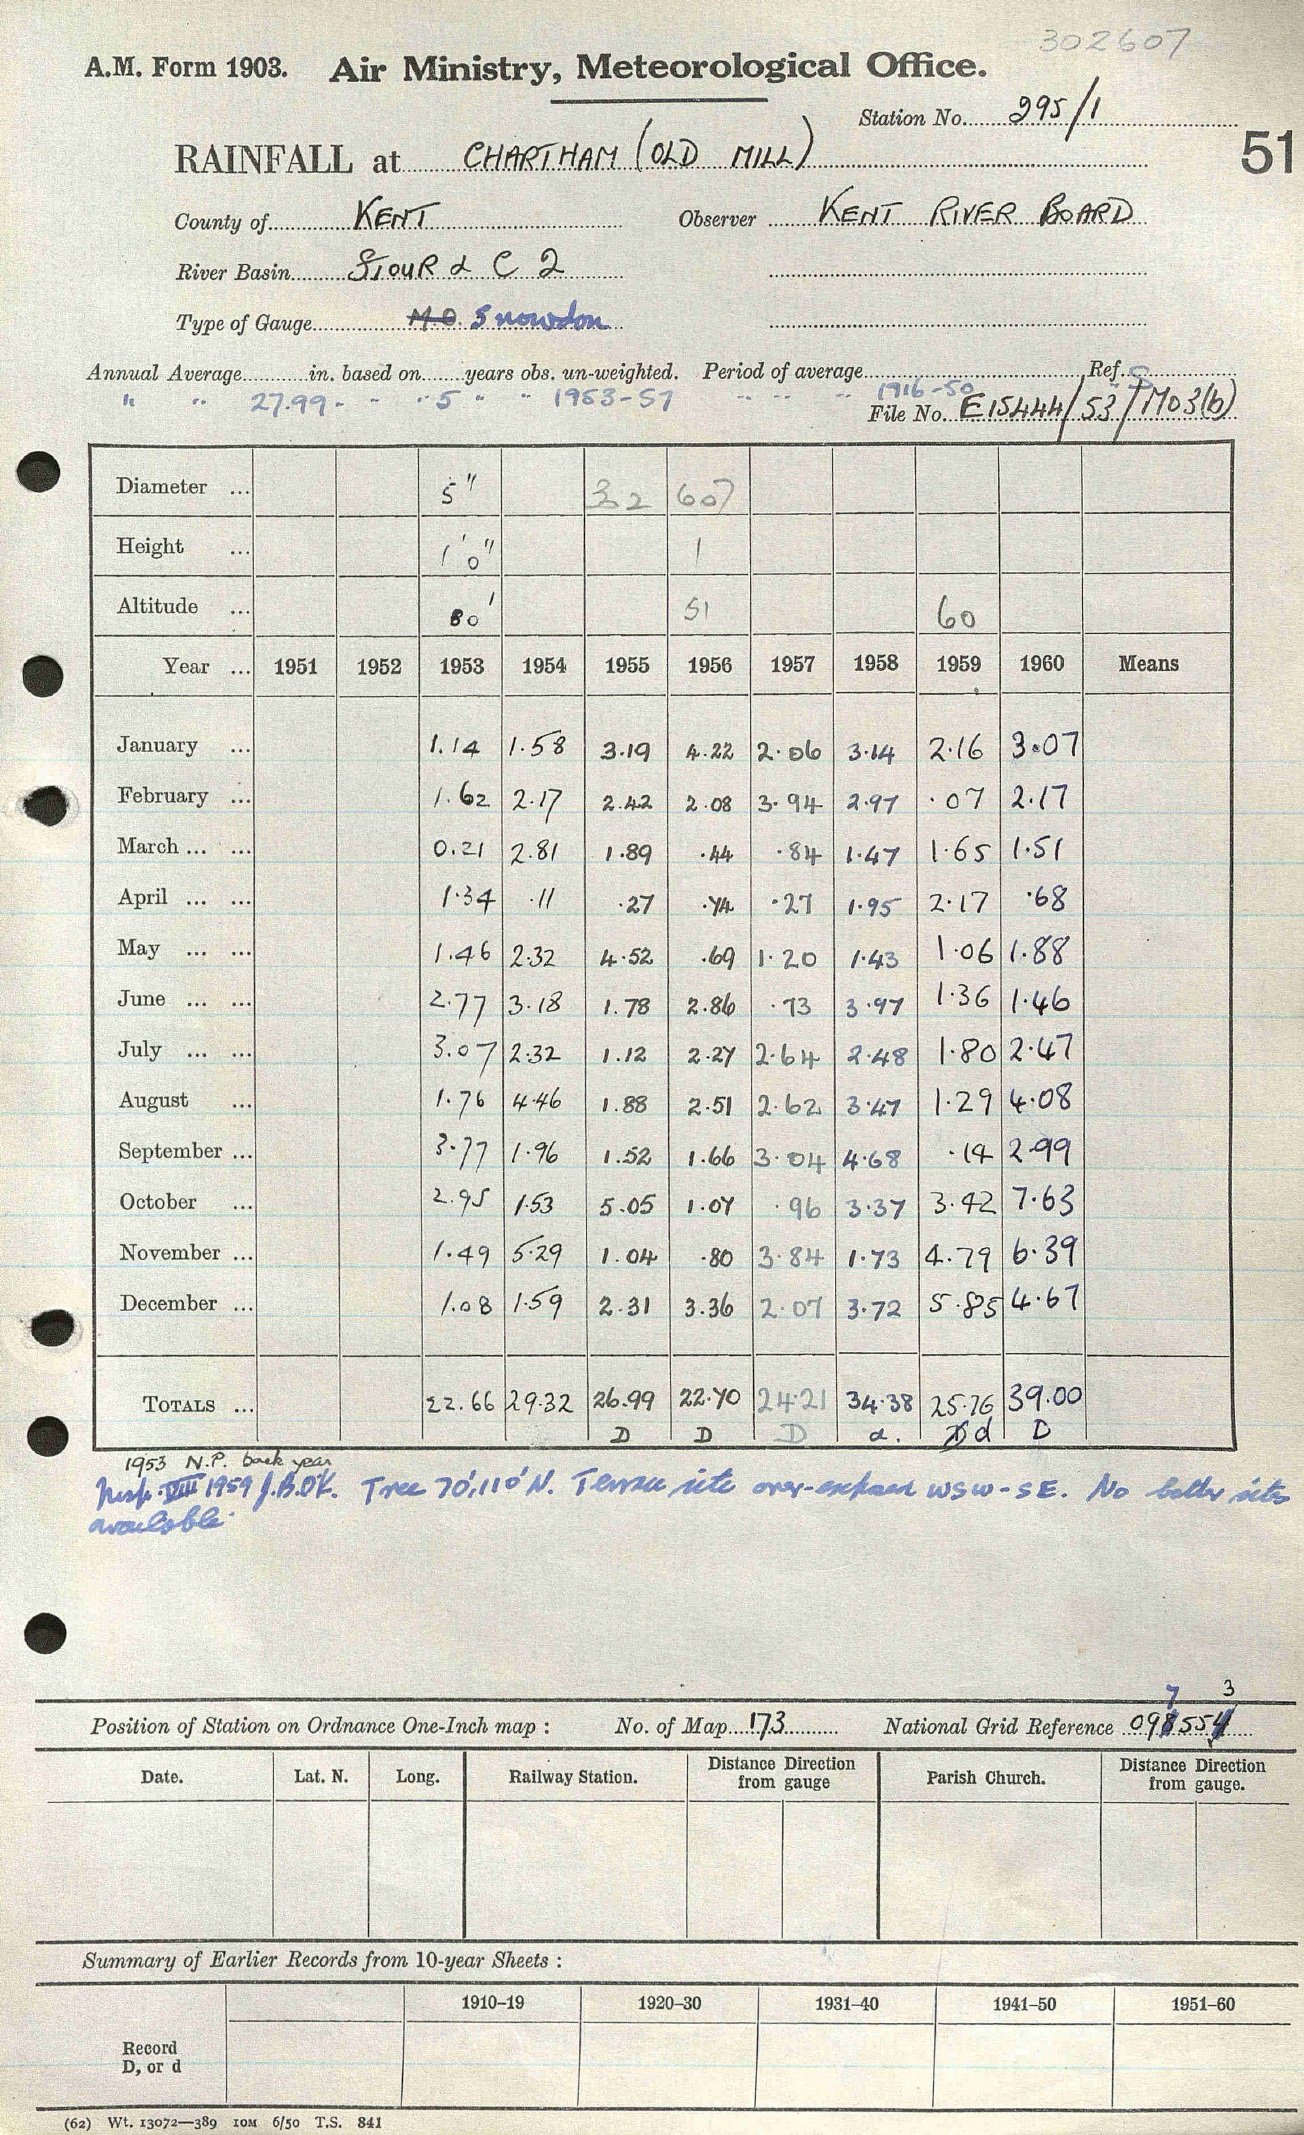 302607
A.M. Form 1903. Air Ministry, Meteorological Office.
Station No. 295/1
51
RAINFALL at CHARTHAM (OLD MILL)
County of KENT Observer KENT RIVER BOARD
River Basin STOUR & C 2
Type of Gauge M.O. Snowdon
Annual Average in. based on years obs. un-weighted. Period of average Ref. S
" " 27.99 " " " 5 " " 1953-57 " " " 1916-50
File No. E15444/53/MO3(b)
Diameter ... 5" 32 607
Height ... 1'0" 1
Altitude ... 80' 51 60
Year ... 1951 1952 1953 1954 1955 1956 1957 1958 1959 1960 Means
January ... 1.14 1.58 3.19 4.22 2.06 3.14 2.16 3.07
February ... 1.62 2.17 2.42 2.08 3.94 2.97 .07 2.17
March ... ... 0.21 2.81 1.89 .44 .84 1.47 1.65 1.51
April ... ... 1.34 .11 .27 .74 .27 1.95 2.17 .68
May ... ... 1.46 2.32 4.52 .69 1.20 1.43 1.06 1.88
June ... ... 2.77 3.18 1.78 2.86 .73 3.97 1.36 1.46
July ... ... 3.07 2.32 1.12 2.27 2.64 2.48 1.80 2.47
August ... 1.76 4.46 1.88 2.51 2.62 3.47 1.29 4.08
September ... 3.77 1.96 1.52 1.66 3.04 4.68 .14 2.99
October ... 2.95 1.53 5.05 1.07 .96 3.37 3.42 7.63
November ... 1.49 5.29 1.04 .80 3.84 1.73 4.79 6.39
December ... 1.08 1.59 2.31 3.36 2.07 3.72 5.85 4.67
TOTALS ... 22.66 29.32 26.99 22.70 24.21 34.38 25.76 39.00
D D D d. D d D
1953 N.P. back year
Insp. VIII 1959 J.B.O'K. Tree 70',110' N. Terrace site over-exposed WSW-SE. No better sites
available.
7 3
Position of Station on Ordnance One-Inch map : No. of Map 173 National Grid Reference 098554
Date. Lat. N. Long. Railway Station. Distance Direction from gauge Parish Church. Distance Direction from gauge.
Summary of Earlier Records from 10-year Sheets :
1910–19 1920–30 1931–40 1941–50 1951–60
Record
D, or d
(62) Wt. 13072—389 10M 6/50 T.S. 841